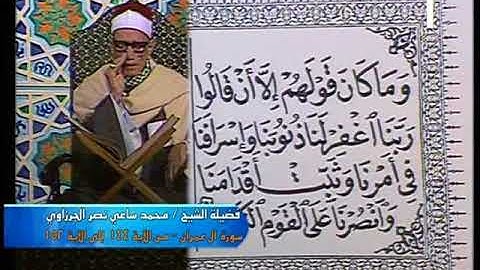 وَمَا كَانَ قَوْلَهُمْ إِلَّا أَنْ قَالُوا
رَبَّنَا اغْفِرْ لَنَا ذُنُوبَنَا وَإِسْرَافَنَا
فِي أَمْرِنَا وَثَبِّتْ أَقْدَامَنَا
وَانْصُرْنَا عَلَى الْقَوْمِ
فضيلة الشيخ / محمد ساعي نصر الجرزاوي
سورة آل عمران - من الآية ١٤٤ إلى الآية